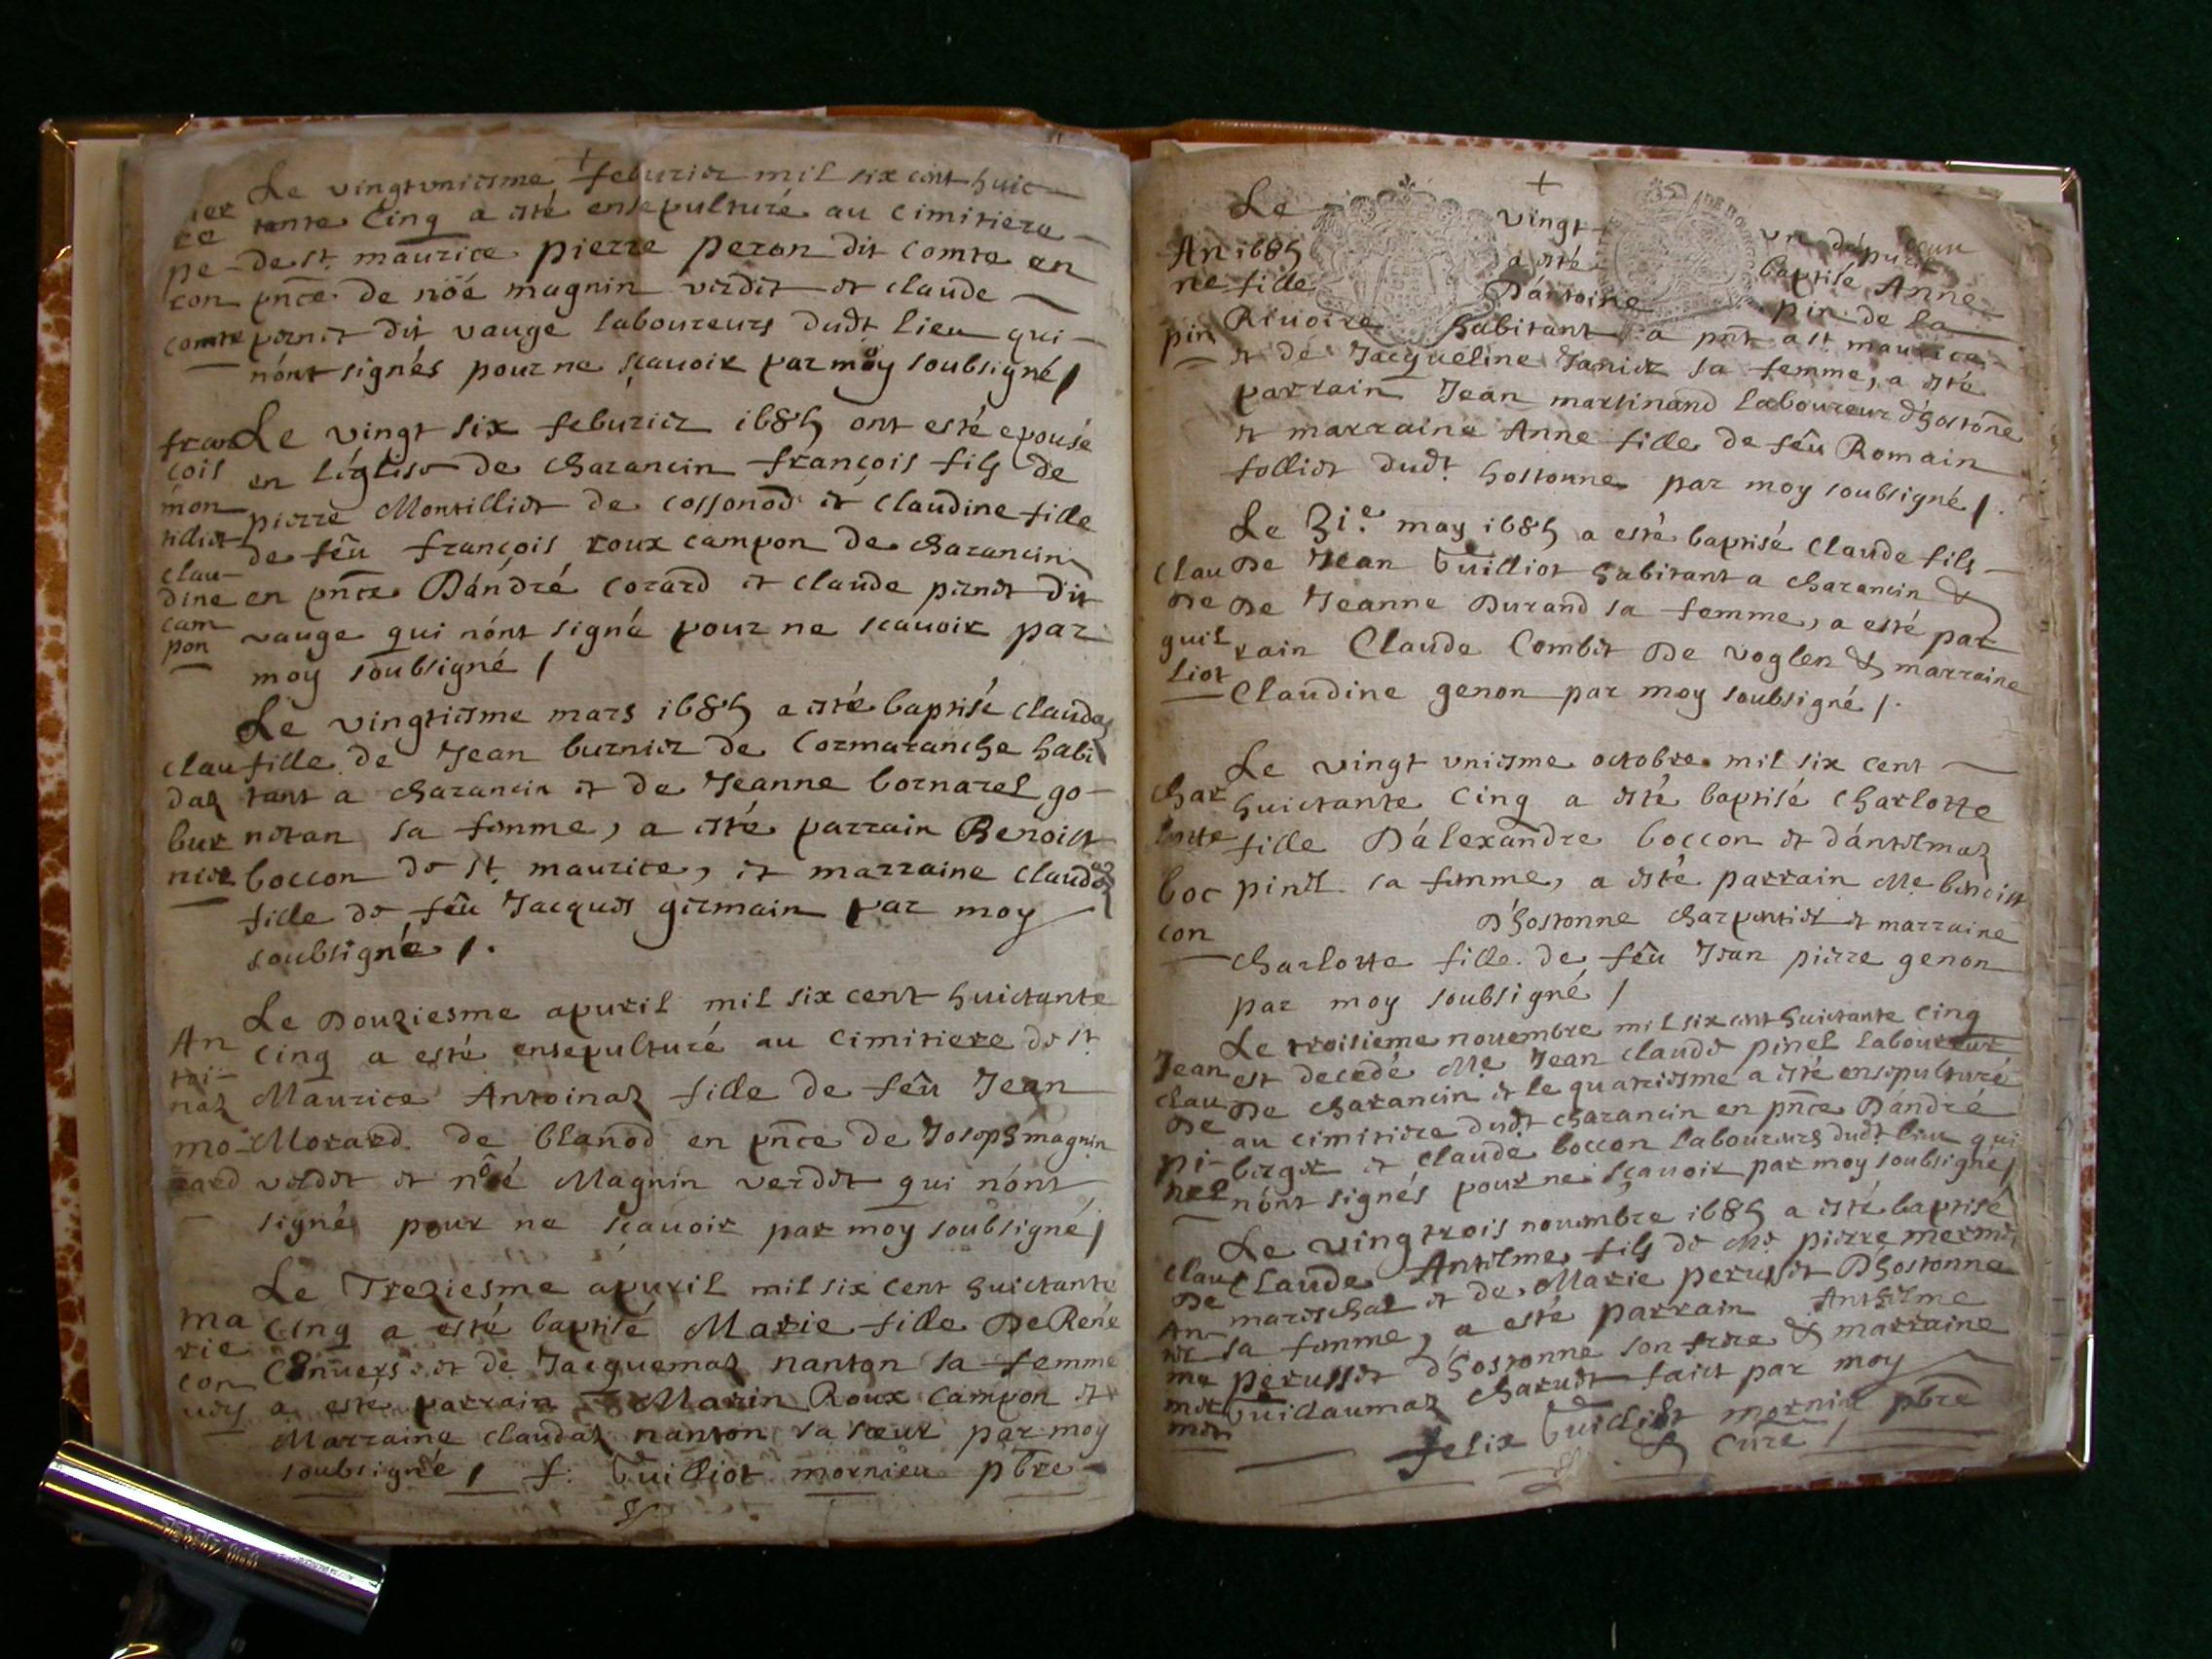 Le vingtuniesme feburier mil six cent huic
ier tante Cinq a esté ensepulturé au cimitiere
re
pe de st. maurice pierre peron dit comte en
con pn̄ce de nôé magnin verdet et claude
comte pernet dit vauge laboureurs dudt lieu qui
n'ont signés pour ne sçauoir par moy soubsigné /
fran Le vingt six feburier 1685 ont esté epousé
cois en l'église de charancin françois fils de
mon pierre Montilliet de cossonod et claudine fille
tilliet de feû françois roux campon de charancin
clau
dine en pn̄ce D'andré corard et claude pernet dit
cam
pon vauge qui n'ont signé pour ne scauoir par
moy soubsigné /
Le vingtiesme mars 1685 a esté baptisé claudaz
clau fille de Jean burnier de Cormaranche habi
daz tant a charancin et de Jeanne bornarel go
bur netan sa femme, a esté parrain Benoist
nier boccon de st. maurice, et marraine claudaz
fille de feû Jacques germain par moy
soubsigné /.
Le Douziesme apuril mil six cent huictante
An cinq a esté ensepulturé au cimitiere de st
toi
naz Maurice Antoinaz fille de feû Jean
mo Morard de blanod en pn̄ce de Joseph magnin
rard verdet et nôé Magnin verdet qui n'ont
signé pour ne sçauoir par moy soubsigné /
Le Treziesme apuril mil six cent huictante
ma cinq a esté baptisé Marie fille De René
rie
con Conuers et de Jacquemaz nanton sa femme
uers a esté parrain Marin Roux Campon et
Marraine claudaz nanton sa sœur par moy
soubsigné / f. Guilliot mornieu pb̄re
Le vingt
An 1685 a esté baptisé Anne
ne fille D'antoine pin de la
pin Riuoire habitant a pn̄t a st maurice
et de Jacqueline Janier sa femme, a esté
parrain Jean martinand laboureur d'hostonne
et marraine Anne fille de feû Romain
folliet dudt hostonne par moy soubsigné /.
Le 31e may 1685 a esté baptisé Claude fils
Clau De Jean Guilliot habitant a charancin &
De De Jeanne Durand sa femme, a esté par
guil rain Claude Combet De voglen & marraine
liot Claudine genon par moy soubsigné /.
Le vingt uniesme octobre mil six cent
Char huictante Cinq a esté baptisé Charlotte
lotte fille D'alexandre boccon et d'antelmaz
boc pinel sa femme, a esté parrain Me benoist
con D'hostonne charpentier et marraine
charlotte fille de feû Jean pierre genon
par moy soubsigné /
Le troisieme nouembre mil six cent huictante cinq
Jean est decedé Me Jean claude pinel laboureur
clau De charancin et le quatriesme a esté ensepulturé
De au cimitiere dudt charancin en pn̄ce D'andré
pi berger et claude boccon laboureurs dudt lieu qui
nel n'ont signés pour ne sçauoir par moy soubsigné /
Le vingtrois nouembre 1685 a esté baptisé
clau Claude Antelme fils de Me pierre mermet
De mareschal et de Marie perusset D'hostonne
An sa femme, a esté parrain Anthelme
tel
me perusset d'hostonne son frere & marraine
mer Guillaumaz charuet faict par moy
met
felix Guilliot mornieu pb̄re
& Curé /